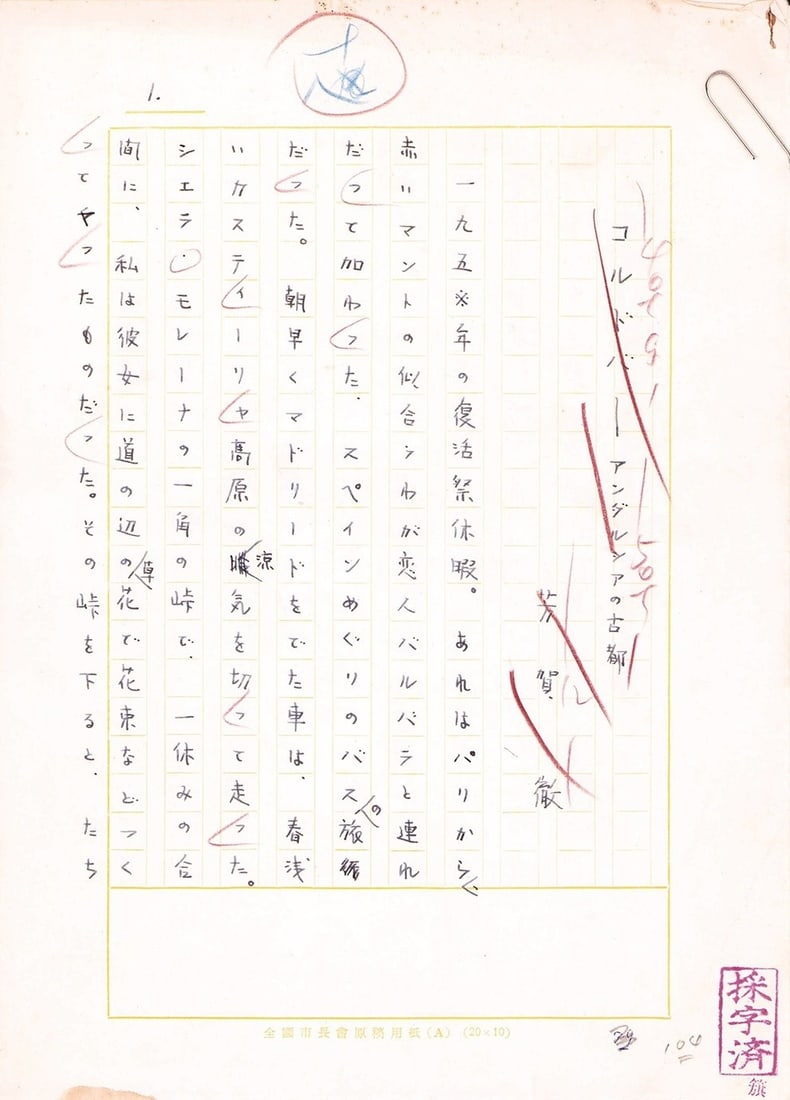 1.
コルドバ ー アンダルシアの古都
芳賀 徹
一九五※年の復活祭休暇。あれはパリから
赤いマントの似合うわが恋人バルバラと連れ
だって加わった、スペインめぐりのバスの旅
だった。朝早くマドリードをでた車は、春浅
いカスティーリャ高原の涼気を切って走った。
シエラ・モレーナの一角の峠で、一休みの合
間に、私は彼女に道の辺の草花で花束などつく
ってやったものだった。その峠を下ると、たち
全國市長會原稿用紙(A) (20×10)
104
採字済